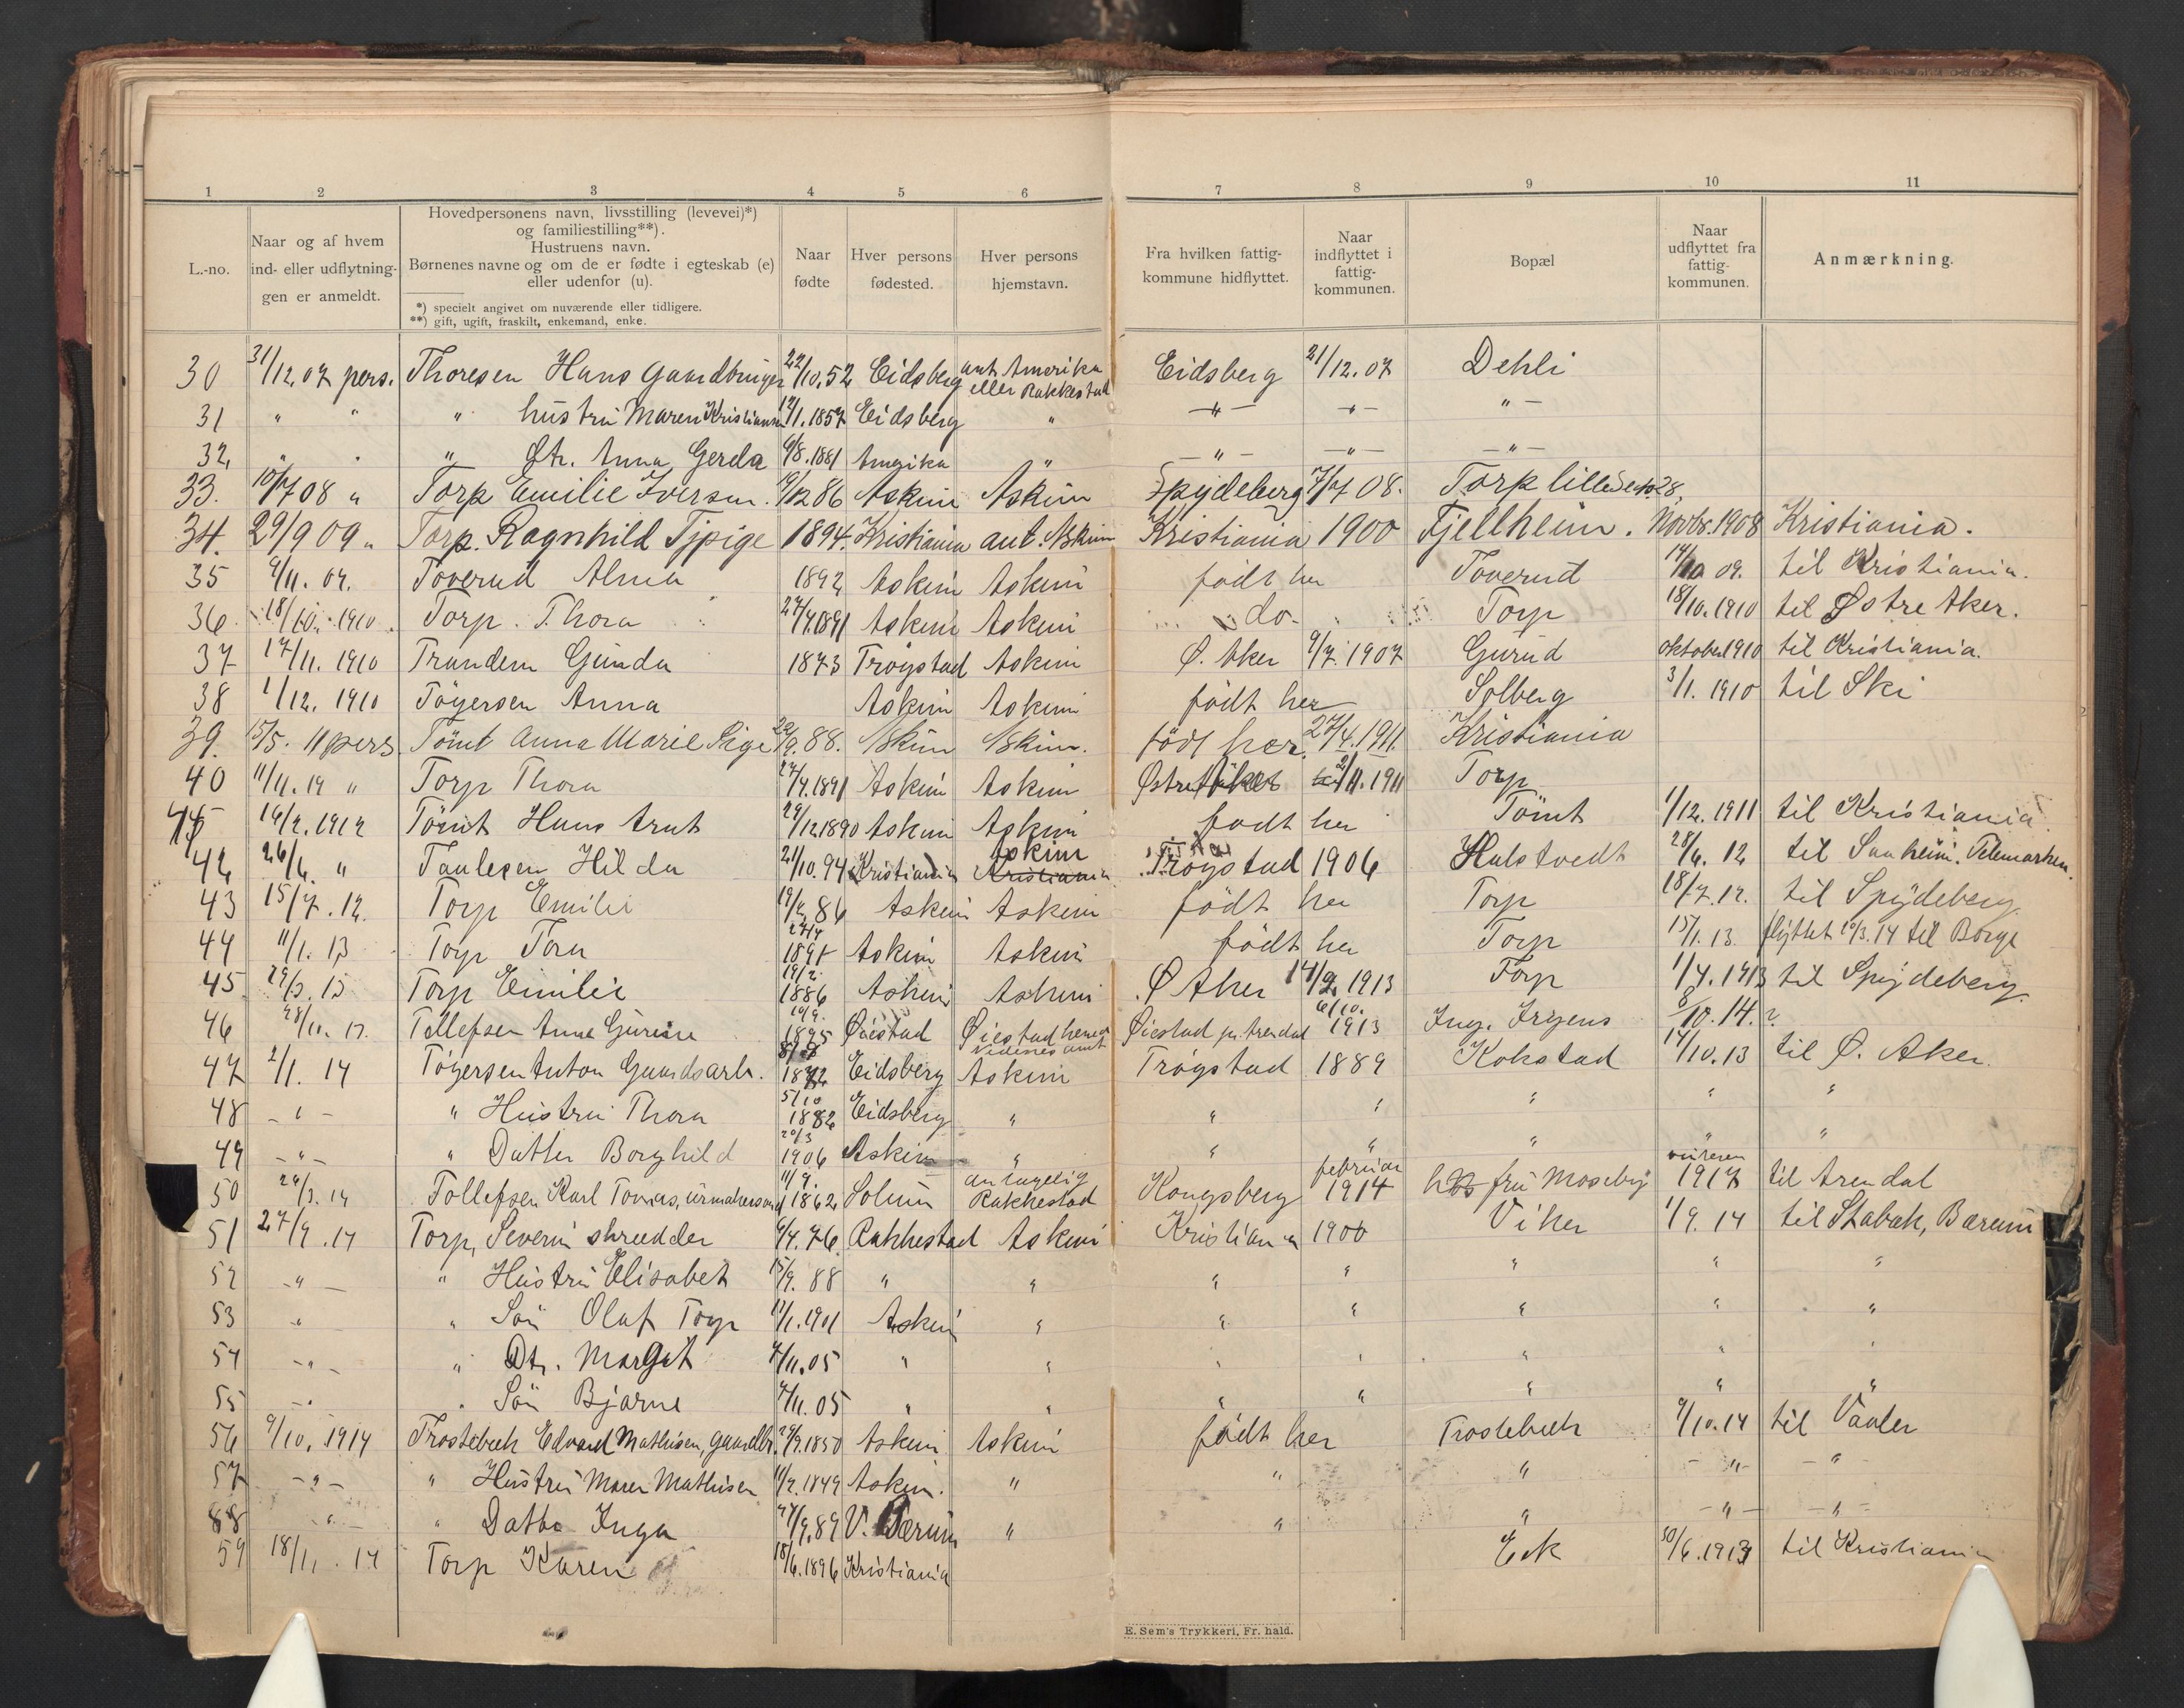 1 2 3 4 5 6 7 8 9 10 11
L.-no.
Naar og af hvem
ind- eller udflytnin-
gen er anmeldt.
Hovedpersonens navn, livsstilling (levevei)*)
og familiestilling**).
Hustruens navn.
Børnenes navne og om de er fødte i egteskab (e)
eller udenfor (u).
*) specielt angivet om nuværende eller tidligere.
**) gift, ugift, fraskilt, enkemand, enke.
Naar
fødte
Hver persons
fødested.
Hver persons
hjemstavn.
Fra hvilken fattig-
kommune hidflyttet.
Naar
indflyttet i
fattig-
kommunen.
Bopæl
Naar
udflyttet fra
fattig-
kommunen.
Anmærkning.
30 31/12.07 pers. Thoresen Hans Gaardbruger 22/10.52 Eidsberg ant. Amerika eller Rakkestad Eidsberg 21/12.07 Dehli
31 " " " hustru Maren Kristiansen 17/1.1857 Eidsberg " - " - - " - " -
32 " " " Dtr. Anna Gerda 9/8.1881 Amerika " - " - - " - - " -
33. 10/7 08 " Torp Emilie Iversen. 19/2 86 Askim Askim Spydeberg 7/7 08. Torp lille
34. 29/9 09 " Torp. Ragnhild Tjpige 1894. Kristiania ant. Askim Kristiania 1900 Fjellheim. Novbr. 1908 Kristiania.
35 9/11. 09. Toverud Alma 1892 Askim Askim født her Toverud 14/10 09. til Kristiania.
36 18/10. 1910 Torp. Thora 27/4.1891 Askim Askim do. Torp 18/10.1910 til Østre Aker.
37 17/11. 1910 Trandem Gunda 1873 Trøgstad Askim Ø. Aker 9/7.1907 Gurud oktober 1910 til Kristiania.
38 1/12. 1910 Tøgersen Anna Askim Askim født her Solberg 3/1. 1910 til Ski
39. 15/5. 11 pers. Tömt Anna Marie Pige 29/9.88. Askim Askim. født her. 27/4.1911. Kristiania
40 11/11. 19 " Torp Thora 27/4.1891 Askim Askim Østre Aker 2/11.1911 Torp
16/2.1912 Tömt Hans Arnt 29/12.1890 Askim Askim født her Tömt 1/12.1911 til Kristiania
42 26/6. " Taulesen Hilda 21/10.94 Kristiania Askim Kristiania Trøgstad 1906 Halstvedt 28/6.12 til Sauheim. Telemarken.
43 15/7.12. Torp Emilie 19/2.86 Askim Askim født her Torp 18/7.12. til Spydeberg
44 11/1.13 Torp Tora 27/4 1891 Askim Askim født her Torp 15/1.13. flyttet 10/3.14 til Borge
45 29/3.13 Torp Emilie 19/2. 1886 Askim Askim Ø Aker 14/2.1913 Torp 1/4.1913 til Spydeberg.
46 28/11.13. Tellefsen Anne Gurine 19/9. 1895 Øiestad Øiestad herred Nedenes amt Øiestad pr. Arendal 6/10. 1913 Ing. Irgens 8/10.14. ?
47 2/1.14 Tøgersen Anton Gaardsarb. 1872 Eidsberg Askim Trøgstad 1889 Kokstad 14/10.13 til Ø. Aker.
48 - " - " Hustru Thora 5/10 1882 Eidsberg " " " " " "
49 - " - " Datter Borghild 20/3 1906 Askim " " " " " "
50 24/3.14 Tollefsen Karl Tomas, urmakersvend 11/9. 1862 Solum antagelig Rakkestad Kongsberg februar 1914 hos fru Moseby vinteren 1917 til Arendal
51 27/9.14 Torp, Severin skrædder 9/4.76. Rakkestad Askim Kristiania 1900 Viker 1/9.14 til Stabæk, Bærum
52 - " - " Hustru Elisabet 15/9.88 " " " " " " "
53 " " Søn Olaf Torp 17/1.1901 Askim " " " " " "
54 - " - " Dtr. Margit 7/11.05 " " " " " " "
55 - " " Søn Bjarne 7/11.05 " " " " " " "
56 9/10.1914 Trostebæk Edvard Mathisen, gaardbr. 29/9.1850 Askim Askim født her Trostebæk 9/10.14 til Vaaler
57 - " - " Hustru Maren Mathisen 11/2.1849 Askim. " " " - " - - " -
58 - " - " Datter Inga 27/9.89 V. Bærum " " " - " - - " -
59 18/11.14 Torp Karen 18/6.1896 Kristiania Eek 30/6.1913 til Kristiania
E. Sem's Trykkeri, Fr. hald.